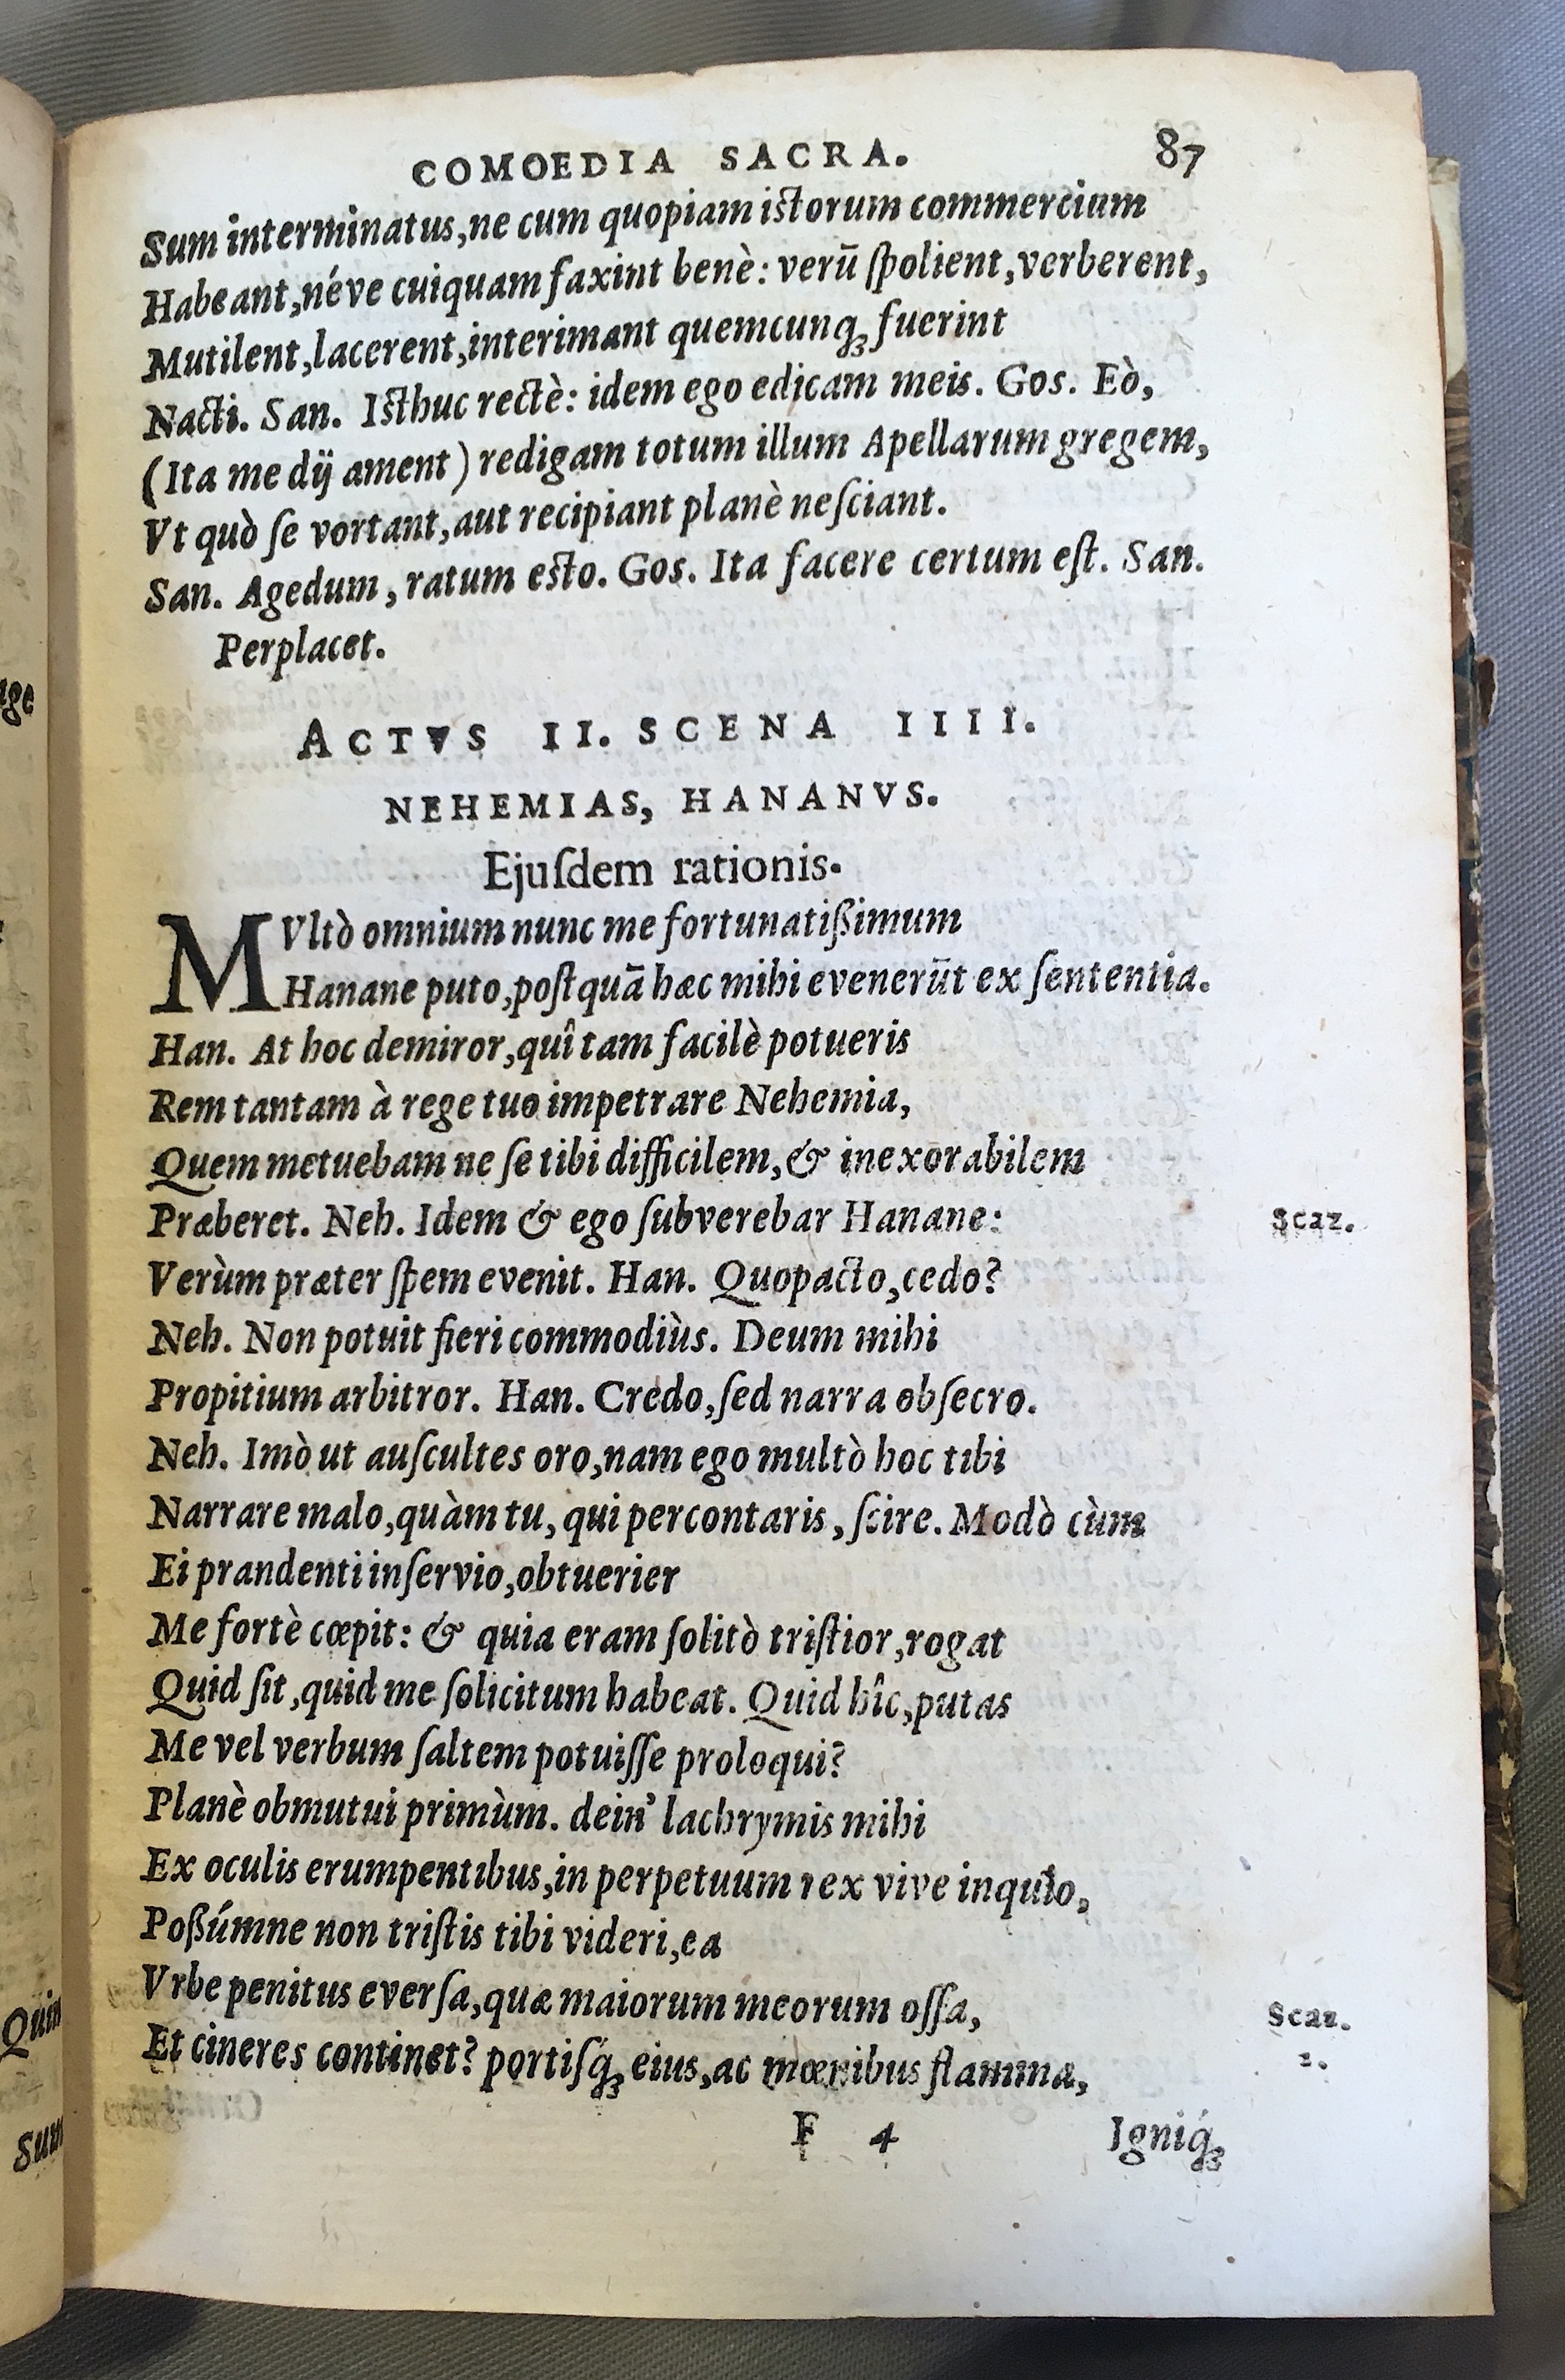 COMOEDIA SACRA. 87
Sum interminatus, ne cum quopiam istorum commercium
Habeant, néve cuiquam faxint benè: verũ ſpolient, verberent,
Mutilent, lacerent, interimant quemcunqꝫ fuerint
Nacti. San. Isthuc rectè: idem ego edicam meis. Gos. Eò,
(Ita me dij ament) redigam totum illum Apellarum gregem,
Vt quò ſe vortant, aut recipiant planè neſciant.
San. Agedum, ratum esto. Gos. Ita facere certum eſt. San.
Perplacet.
ACTVS II. SCENA IIII.
NEHEMIAS, HANANVS.
Ejuſdem rationis.
MVltò omnium nunc me fortunatißimum
Hanane puto, poſtquã hæc mihi evenerũt ex ſententia.
Han. At hoc demiror, quî tam facilè potueris
Rem tantam à rege tuo impetrare Nehemia,
Quem metuebam ne ſe tibi difficilem, & inexorabilem
Præberet. Neh. Idem & ego ſubverebar Hanane: Scaz.
Verùm præter ſpem evenit. Han. Quopacto, cedo?
Neh. Non potuit fieri commodiùs. Deum mihi
Propitium arbitror. Han. Credo, ſed narra obſecro.
Neh. Imò ut auſcultes oro, nam ego multò hoc tibi
Narrare malo, quàm tu, qui percontaris, ſcire. Modò cùm
Ei prandenti inſervio, obtuerier
Me fortè cœpit: & quia eram ſolitò triſtior, rogat
Quid ſit, quid me ſolicitum habeat. Quid hîc, putas
Me vel verbum ſaltem potuiſſe proloqui?
Planè obmutui primùm. dein' lachrymis mihi
Ex oculis erumpentibus, in perpetuum rex vive inquio,
Poßúmne non triſtis tibi videri, ea
Vrbe penitus everſa, quæ maiorum meorum oſſa, Scaz.
Et cineres continet? portiſq́ꝫ eius, ac mœnibus flamma, 2.
F 4 Igniq́ꝫ
age
Quin
Sum